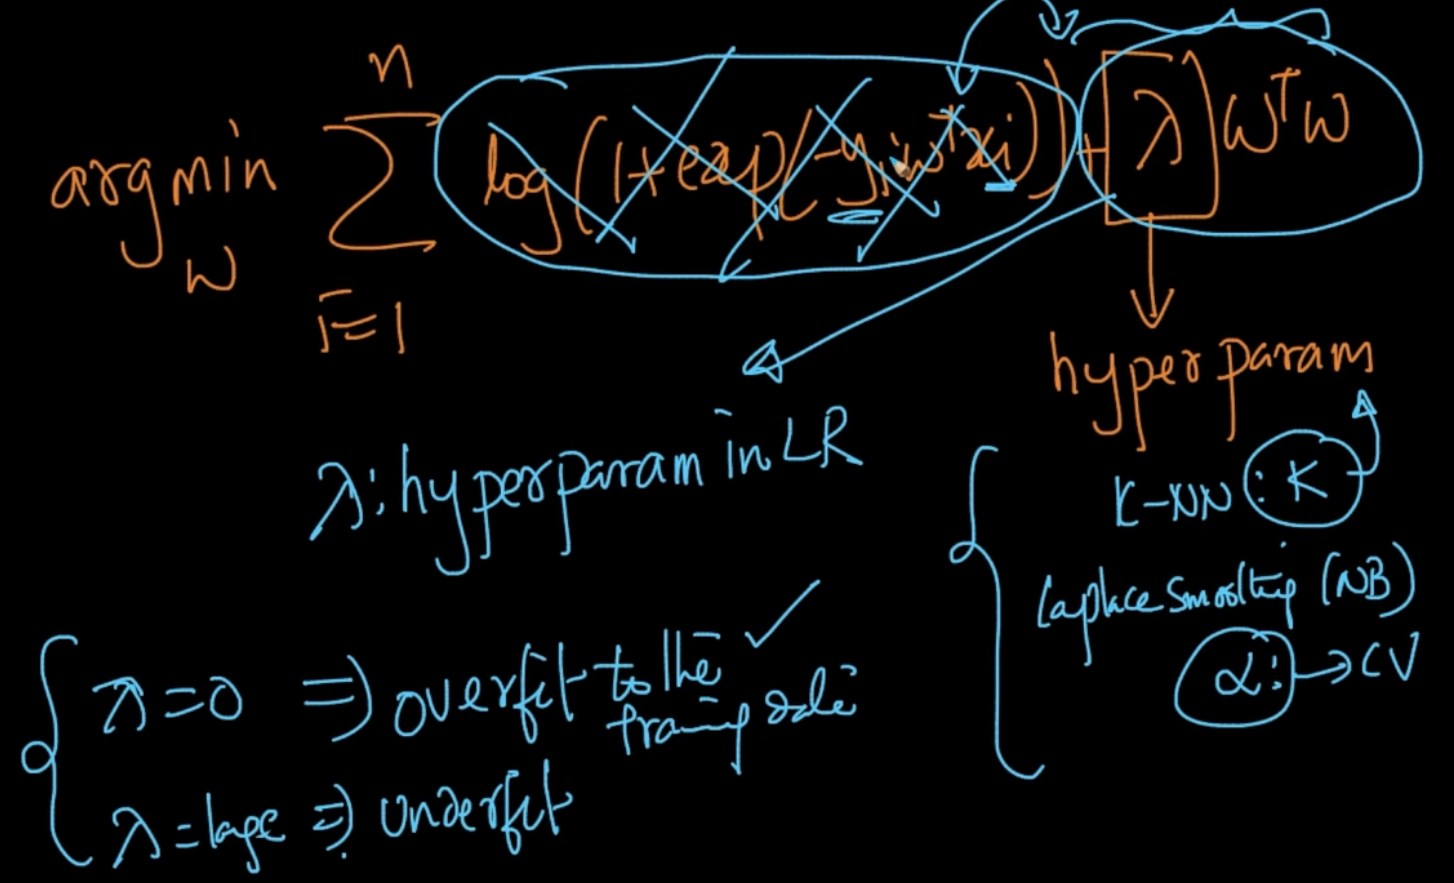 n
argmin Σ log(1+exp(-yiwᵀxi)) + [λ] wᵀw
w
i=1
hyperparam
λ: hyperparam in LR
K-NN : K
Laplace Smoothing (NB)
α: → CV
λ=0 ⇒ overfit to the ✓
training data
λ = large ⇒ underfit